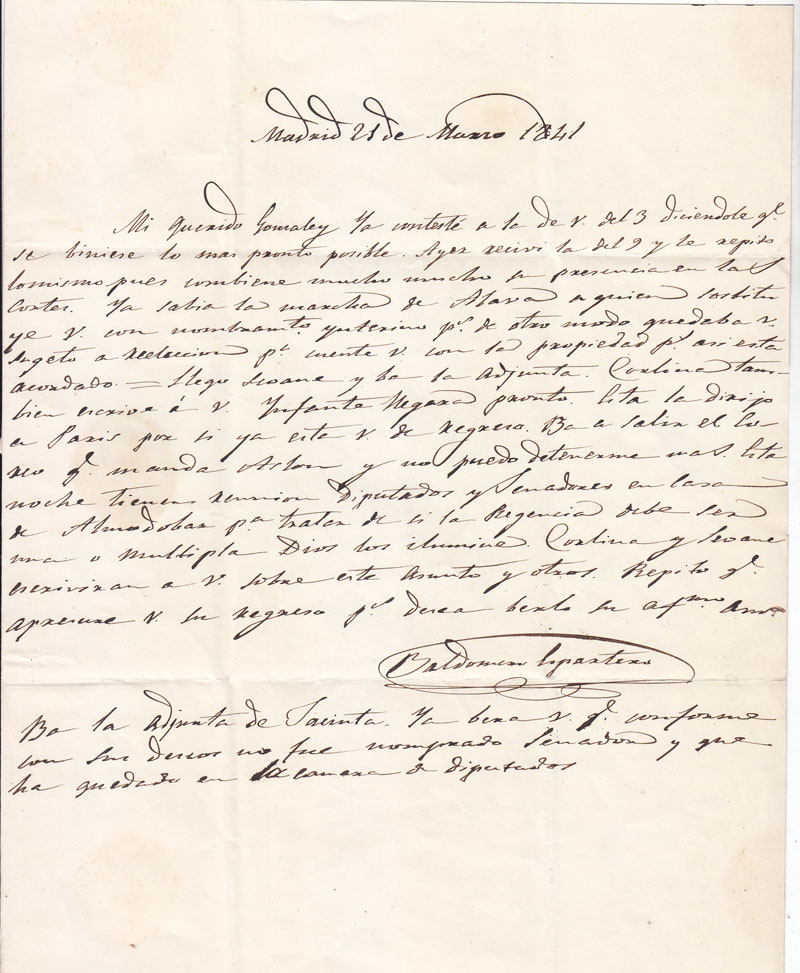 Madrid 21 de Marzo 1841
Mi querido Gonzalez Ya contesté a la de V. del 3 diciendole q.
se biniese lo mas pronto posible. Ayer recivi la del 9 y le repito
lo mismo pues combiene mucho mucho su presencia en las
Cortes. Ya sabia la marcha de Alava a quien sostitu
ye V. con nombramto. ynterino ps. de otro modo quedaba V.
sugeto a reeleccion pr. cuente V. con la propiedad ps. asi esta
acordado. = Llego Seoane y ba la adjunta. Cortina tam-
bien escrive á V. Ynfante llegara pronto. Esta la dirijo
a Paris por si ya esta V. de regreso. Ba a salir el Co-
rreo q. manda Aston y no puedo detenerme mas. Esta
noche tienen reunion Diputados y Senadores en casa
de Almodobar pa. tratar de si la Regencia debe ser
una o multipla Dios los ilumine. Cortina y Seoane
escriviran a V. sobre este asunto y otros. Repito q.
apresure V. su regreso ps. desea berlo su afmo. amo.
Baldomero Espartero
Ba la adjunta de Jacinta. Ya bera V. q. conforme
con sus deseos no fue nomprado Senador y que
ha quedado en la camara de diputados